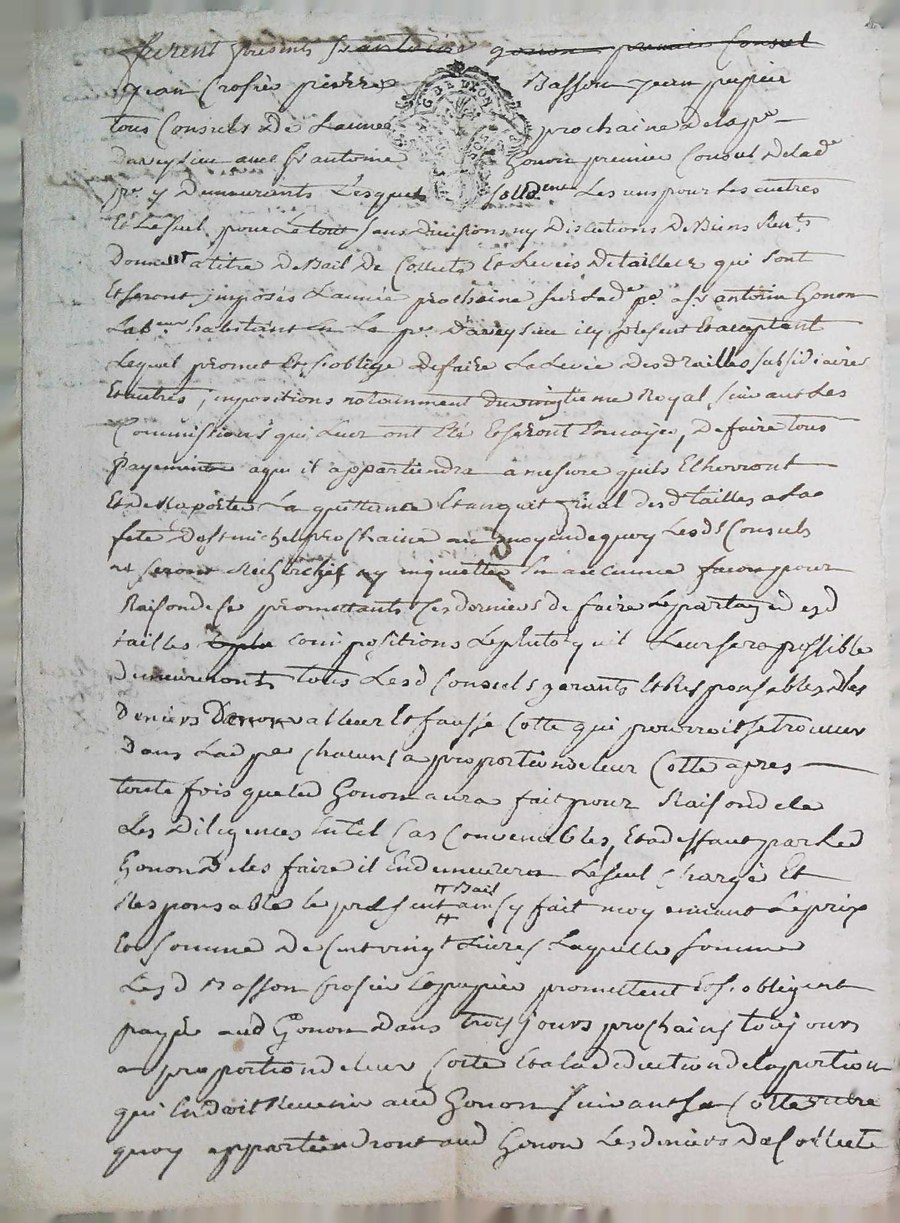 furent presents Sr antoine gonon premier Consul
jean Crosier pierre Basson jean pupier
tous Consuls de L'année prochaine de la pe
Daveysieu avec Sr antoine Gonon premier Consul de lade
pe y Demeurants Lesquels sollidment Les uns pour Les autres
Et Le seul pour Le tout sans divisions ny Discutions De Biens
Donnent a titre De Bail De Collecte Et Levée De tailles qui sont
Et seront jmposés L'année prochaine sur Lade pe a Sr antoine Gonon
Labeur habitant En La pe Daveysieu icy present Et aceptant
Lequel promet Et s'oblige de faire La Levée Desd tailles subsidiaire
Et autres jmpositions notamment Du vingtieme Royal, suivant Les
Commissions qui Leur ont Eté Et seront Envoyée, De faire tous
payements a qui il appartiendra a mesure quils Echerront
Et de Raporter La quittance Et acquit final desd tailles a la
fete De st michel prochaine au moyen de quoy Les ds Consuls
ne seront Recherchés ny inquiettés En aucunne façon pour
Raison de ce promettants Ces derniers de faire Le partage desd
tailles Et jmpositions Le plutot quil Leur sera possible
Demeureront tous Lesd Consuls garants Et Responsables des
Deniers De non valleur Et fausse Cotte qui pourroit se trouver
Dans Lad pe Chacuns a proportion de leur Cotte apres
toute fois que led Gonon aura fait pour Raison de ce
Les Diligences En tel Cas Convenables, Et a deffaut par Led
Gonon De les faire il En demeurera Le seul Chargé Et
Responsable le present Bail ainsy fait moyennant Le prix
Et somme De Cent vingt Livres Laquelle somme
Lesd Basson Crosier Et pupier promettent Et s'obligent
payer aud Gonon Dans trois jours prochains toujours
a proportion de leur Cotte Et a la deduction de la portion
qui En doit Revenir aud Gonon suivant sa Cotte outre
quoy appartiendront aud Gonon Les deniers De Collecte